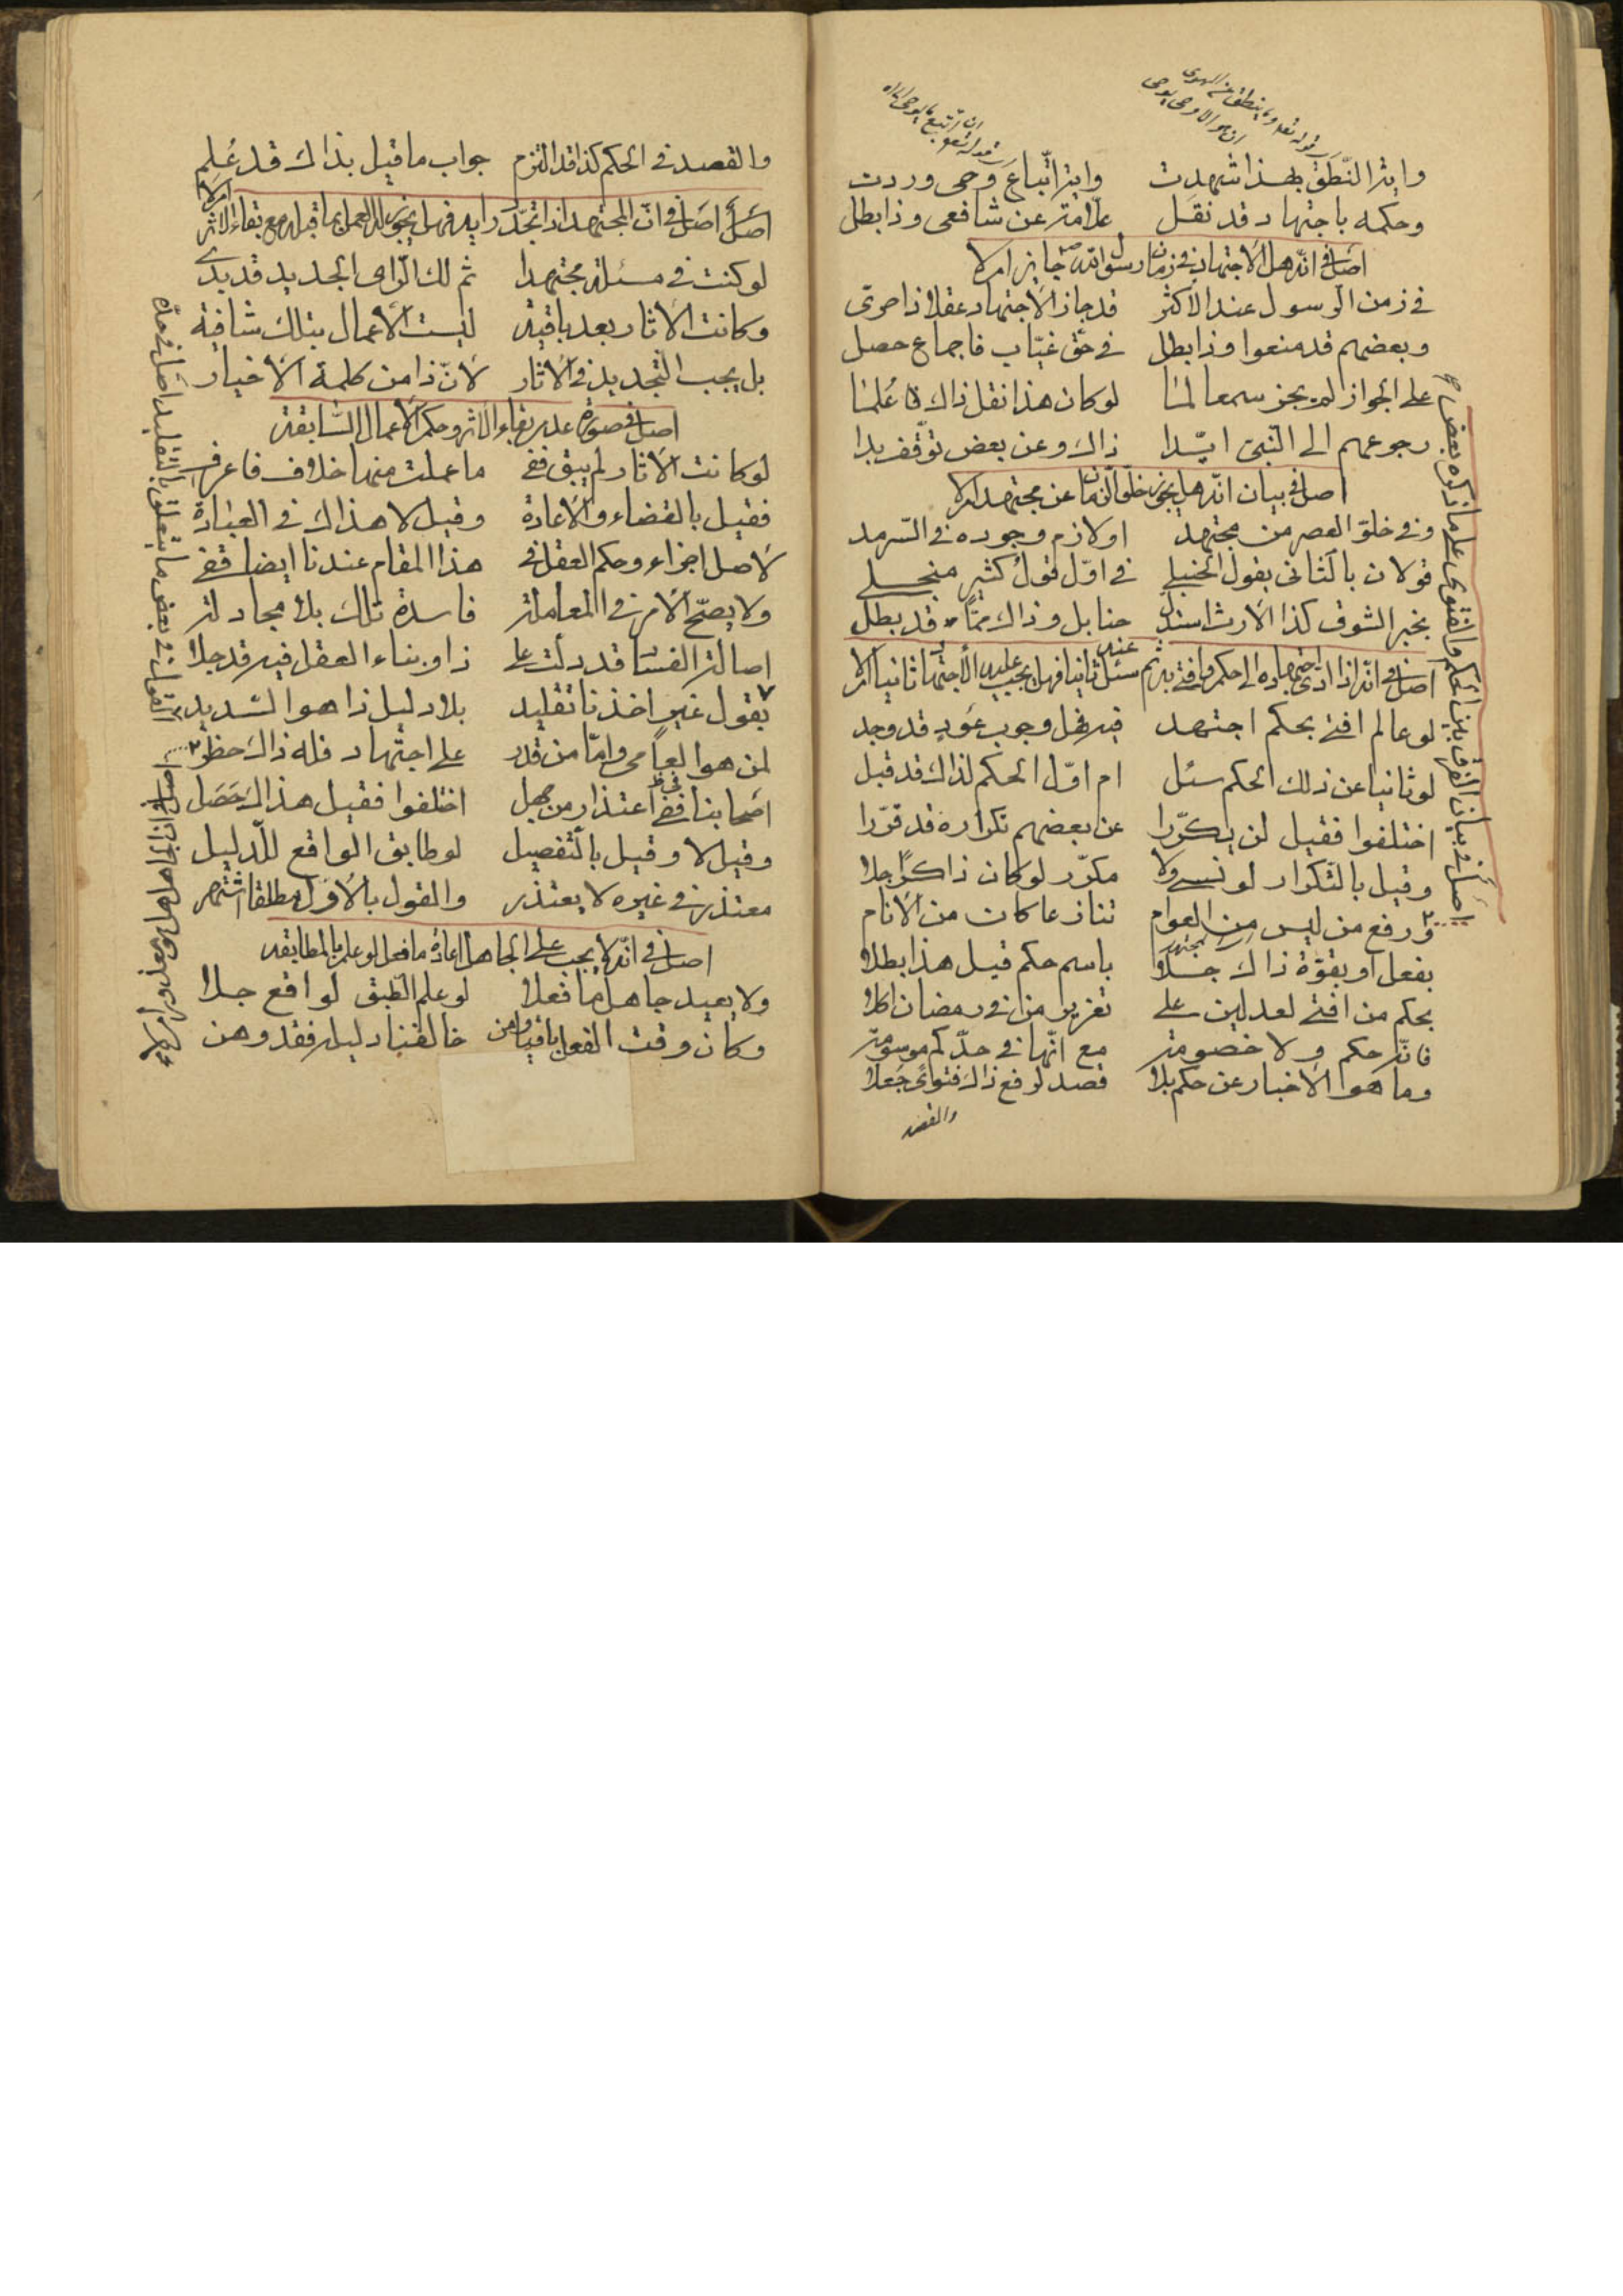 قوله تعالى وما ينطق عن الهوى
ان هو الا وحي يوحى
ان اتبع الا ما يوحى
واية النّطق بهذا شهدت واية اتّباع وحى وردت
وحكمه باجتهاد قد نقل علامة عن شافعى وذا بطل
اصل فى انّه هل الاجتهاد فى زمان رسول الله ص جايز ام لا
فى زمن الرسول عند الاكثر قد جاز الاجتهاد عقلا ذا حرى
وبعضهم قد منعوا وذا بطل فى حق غيّاب فاجماع حصل
على الجواز لم يجز سمعا لمنا لو كان هذا نقل ذاك علمنا
رجوعهم الى النّبى ايّدا ذاك وعن بعض توقّف بدا
اصل فى بيان انّه هل يجوز خلوّ الزمان عن مجتهد ام لا
وفى خلوّ العصر من مجتهد او لازم وجوده فى السّرمد
قولان بالثانى يقول الحنبلى فى اوّل قول كثير منجلى
بخبر الشوق كذا الارث استدل حنابل وذاك ممّا قد بطل
اصل فى انّه اذا ادّى اجتهاده الى حكم وافتى به ثم سئل عنه ثانيا فهل يجب عليه الاجتهاد ثانيا ام لا
لو عالم افتى بحكم اجتهد فيه فهل وجوب عود قد وجد
لو ثانيا عن ذلك الحكم سئل ام اوّل الحكم لذاك قد قبل
اختلفوا فقيل لن يكرّرا عن بعضهم تكراره قد قرّرا
وقيل بالتكرار لو نسى ولا مكرّر لو كان ذاكرا جلا
اصل فى بيان الفرق بين الحكم والفتوى على ما ذكره بعض
ورفع من ليس من العوام تنازعا كان من الانام
بفعل او بقوّة ذاك جلا باسم حكم قيل هذا بطلا
بحكم من افتى لعدلين على تعزير من فى رمضان اكلا
فانّه حكم ولا خصومة مع انّها فى حدّكم موسومة
وما هو الاخبار عن حكم بلا قصد لرفع ذاك فتوى جعلا
والقصد
والقصد فى الحكم كذا قد التزم جواب ما قيل بذاك قد علم
اصل اصل فى انّ المجتهد اذا تجدّد رايه فهل يجوز له العمل بما قبله مع بقاء الاثر ام لا
لو كنت فى مسئلة مجتهدا ثم لك الرّاى الجديد قد بدى
وكانت الاثار بعد باقية ليست الاعمال بتلك شافية
بل يجب التجديد فى الاثار لانّ ذا من كلمة الاخيار
اصل فى صورة عدم بقاء الاثر وحكم الاعمال السّابقة
لو كانت الاثار لم يبق ففى ما عملت منها خلاف فاعرف
فقيل بالقضاء والاعادة وقيل لا هذاك فى العبادة
لاصل اجزاء وحكم العقل فى هذا المقام عندنا ايضا قفى
ولا يصحّ الامر فى المعاملة فاسدة تلك بلا مجادلة
اصالة الفساد قد دلت على ذا وبناء العقل فيه قد جلا
القول فى بعض ما يتعلق بالتقليد اصل فى حدّه
بقول غير اخذنا تقليد بلا دليل ذا هو السّديد
لمن هو العامى وامّا من قدر على اجتهاد فله ذاك حظر
اصل فى ان الجاهل هل هو معذور ام لا
اصحابنا فى اعتذار من جهل اختلفوا فقيل هذا لحصل
وقيل لا وقيل بالتفصيل لو طابق الواقع للدّليل
معتذر فى غيره لا يعتذر والقول بالاوّل مطلقا اشتهر
اصل فى انّه لا يجب على الجاهل اعادة ما فعل لو علم بالمطابقة
ولا يعيد جاهل ما فعلا لو علم الطّبق لواقع جلا
وكان وقت الفعل باقيا ومن خالفنا دليله فقد وهن